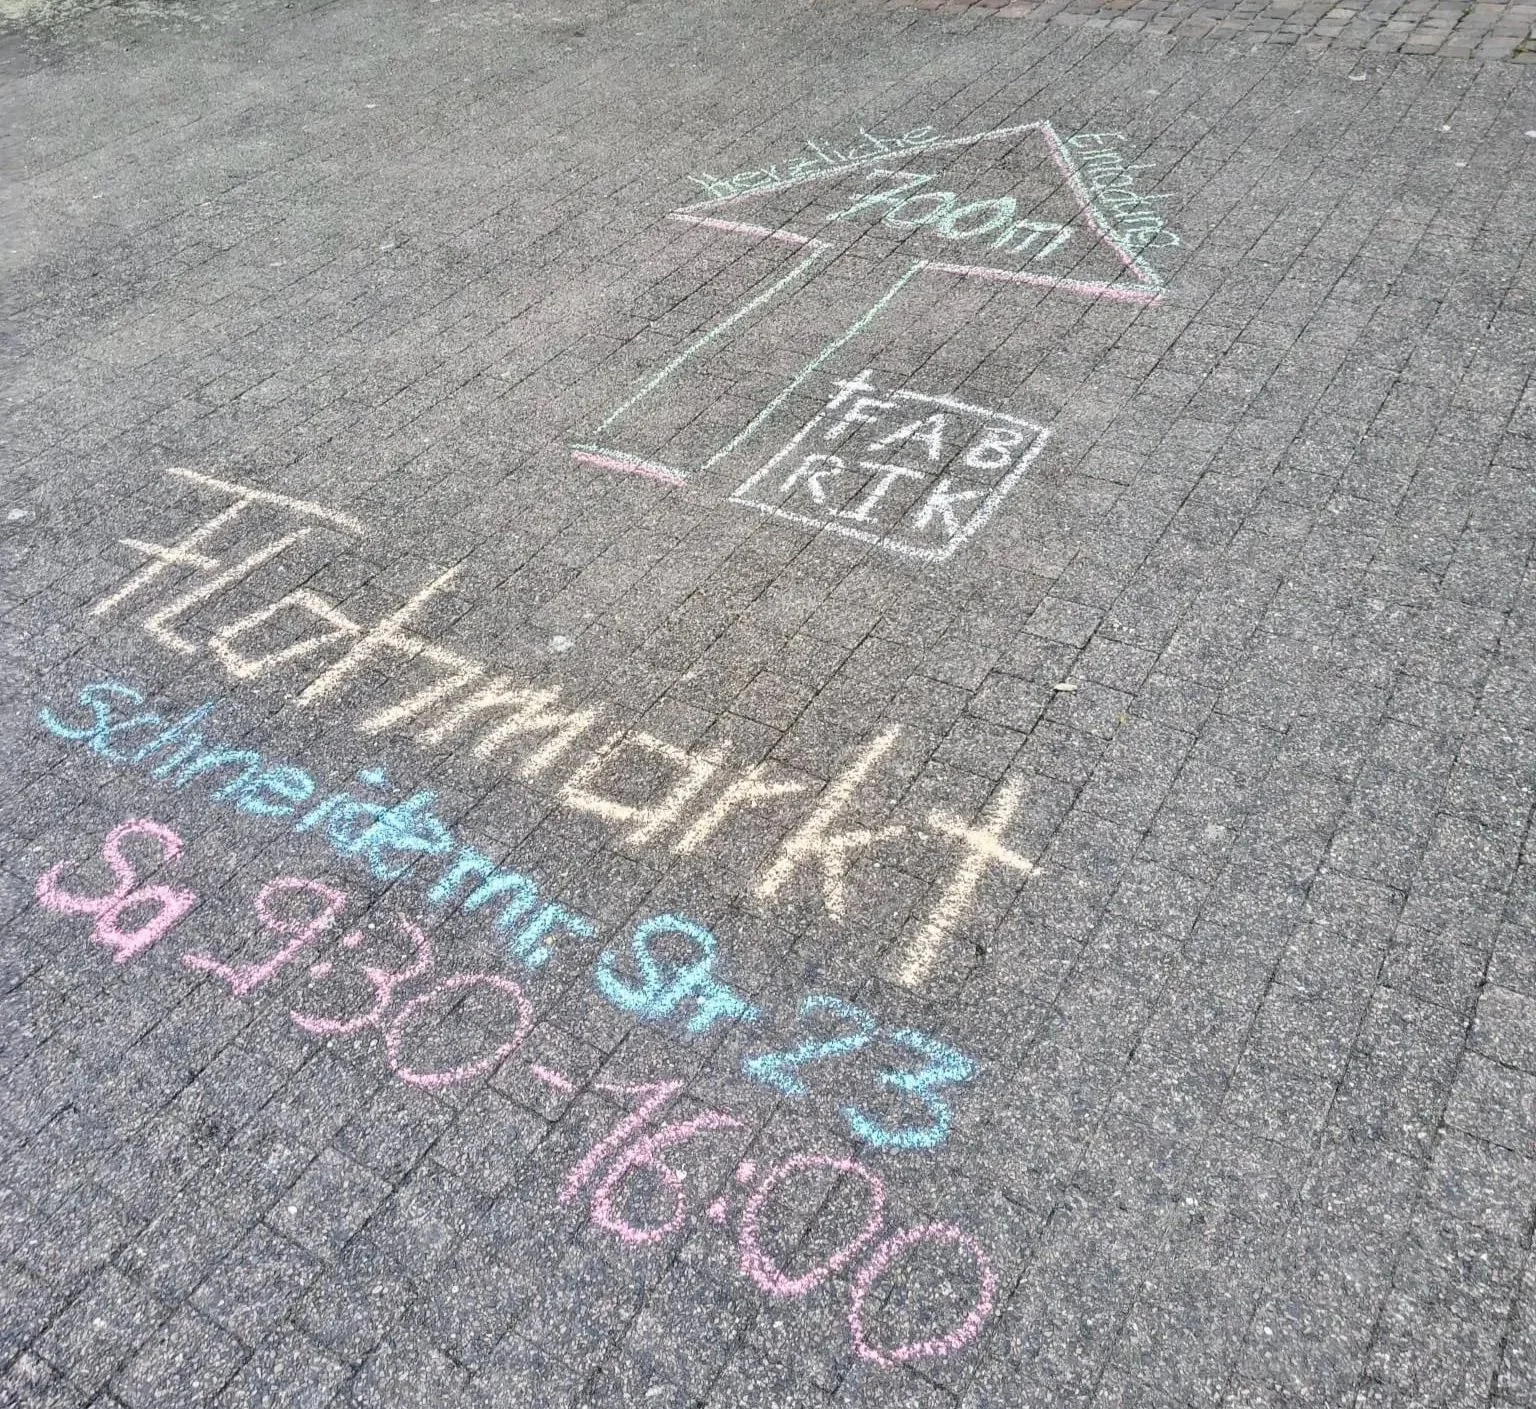 Herzliche Einladung
700m
FAB
RIK
Flohmarkt
Schneidemr. Str 23
Sa 9:30-16:00